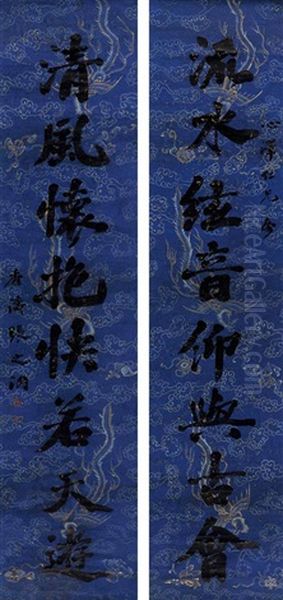 流水絃音仰與古會
清風懷抱快若天遊
香濤張之洞